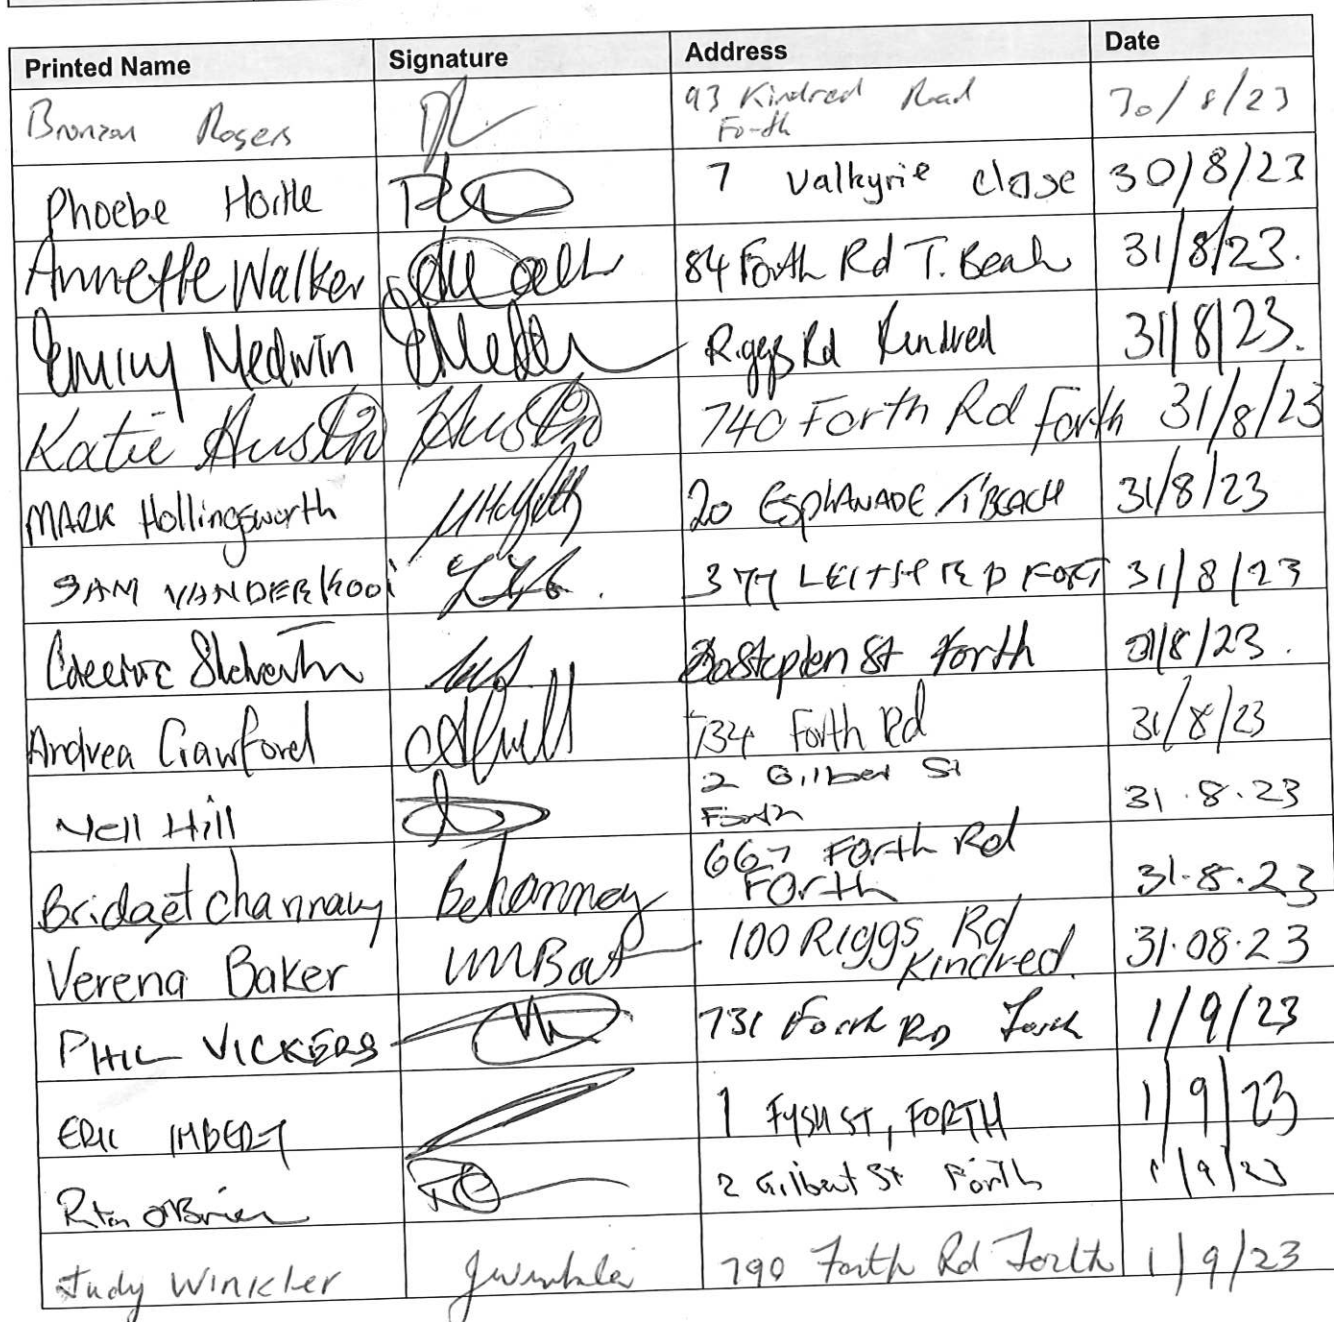 Printed Name Signature Address Date
Rogers 93 Kindred Road 30/8/23
Forth
Phoebe Hortle 7 Valkyrie close 30/8/23
Annette Walker 84 Forth Rd T. Beach 31/8/23.
Emily Medwin Riggs Rd Kindred 31/8/23.
Katie Austin Austin 740 Forth Rd Forth 31/8/23
MARK Hollingsworth 20 ESPLANADE T'BEACH 31/8/23
SAM VANDERKOOI 377 LEITH RD FORT 31/8/23
Stephen St Forth 31/8/23.
Andrea Crawford 734 Forth Rd 31/8/23
Nell Hill 2 Gilbert St 31.8.23
Forth
Bridget channary Bchanney 667 Forth Rd 31.8.23
Forth
Verena Baker 100 Riggs Rd 31.08.23
Kindred.
PHIL VICKERS 731 Forth RD Forth 1/9/23
ERIC IMBERT 1 FYSH ST, FORTH 1/9/23
O'Brien 2 Gilbert St Forth 1/9/23
Judy Winkler Jwinkler 790 Forth Rd Forth 1/9/23